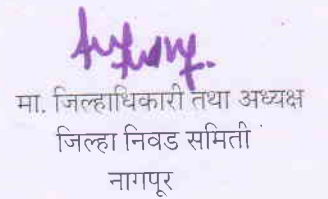 मा. जिल्हाधिकारी तथा अध्यक्ष
जिल्हा निवड समिती
नागपूर